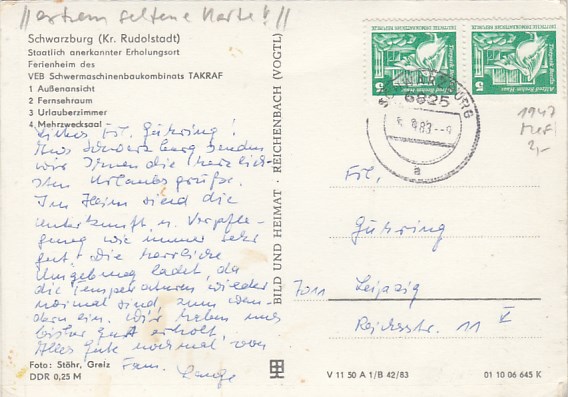 //extrem seltene Karte!//
Schwarzburg (Kr. Rudolstadt)
Staatlich anerkannter Erholungsort
Ferienheim des
VEB Schwermaschinenbaukombinats TAKRAF
1 Außenansicht
2 Fernsehraum
3 Urlauberzimmer
4 Mehrzwecksaal
Liebes Frl. Gühring!
Aus Schwarzburg senden
wir Ihnen die herzlich-
sten Urlaubsgrüße.
Im Heim sind die
Unterkunft u. Verpfle-
gung wie immer sehr
gut. Die herrliche
Umgebung ladet, da
die Temperaturen wieder
normal sind, zum Wan-
dern ein. Wir haben uns
bisher gut erholt.
Alles Gute nochmal von
Fam. Lange
Foto: Stöhr, Greiz
DDR 0,25 M
BILD UND HEIMAT · REICHENBACH (VOGTL)
DEUTSCHE DEMOKRATISCHE REPUBLIK
Tierpark Berlin
Alfred-Brehm-Haus
5
DEUTSCHE DEMOKRATISCHE REPUBLIK
Tierpark Berlin
Alfred-Brehm-Haus
5
SCHWARZBURG
6825
83
a
1947
MeF
2,-
Frl.
Gühring
7011 Leipzig
Reichsstr. 11 V
V 11 50 A 1/B 42/83
01 10 06 645 K